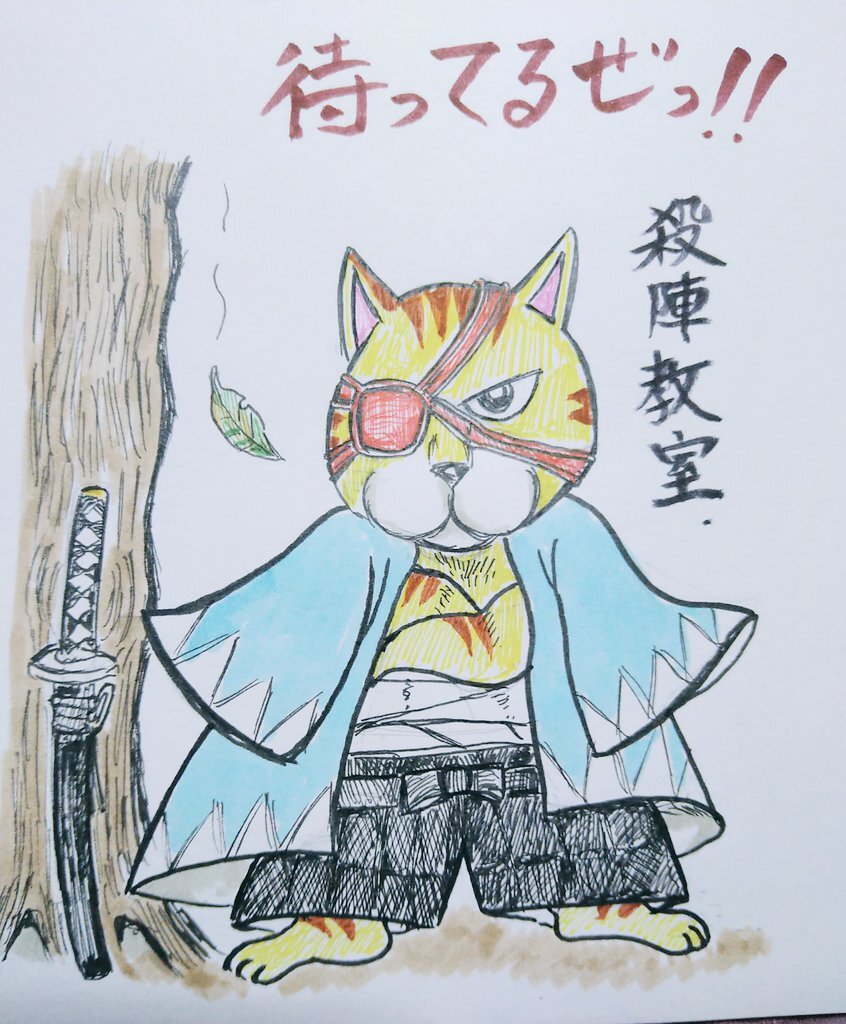 待ってるぜっ!!
殺陣教室.